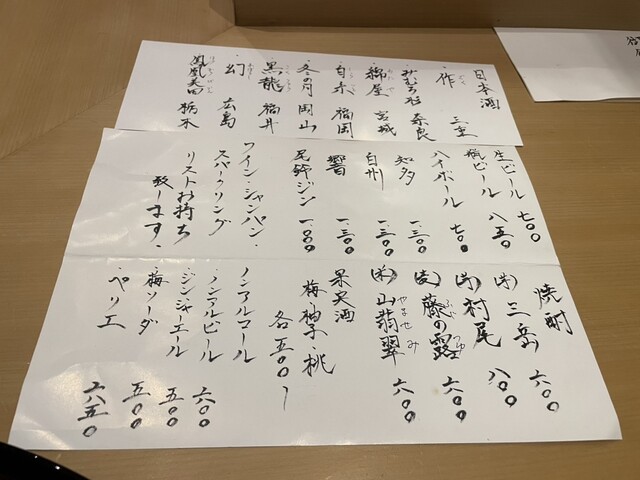 日本酒
・作 ざく 三重
・みむろ杉 奈良
・綿屋 わたや 宮城
・田中六五 福岡
・冬の月 岡山
・黒龍 こくりゅう 福井
・幻 広島
・鳳凰美田 ほうおうびでん 栃木
生ビール 七〇〇
瓶ビール 八五〇
ハイボール 七〇〇
知多 一、三〇〇
白州 一、三〇〇
響 一、三〇〇
尾鈴ジン 一、〇〇〇
ワイン・シャンパン・
スパークリング
リストお持ち
致します。
焼酎
(芋) 三岳 六〇〇
(芋) 村尾 八〇〇
(麦) 藤の露 ふじ つゆ 六〇〇
(米) 山翡翠 やませみ 六〇〇
果実酒
梅・柚子・桃
各五〇〇〜
ノンアルコール
・ノンアルビール 六〇〇
・ジンジャーエール 五〇〇
・梅ソーダ 五〇〇
・ペリエ 六五〇